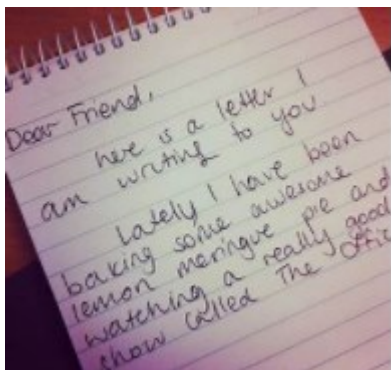 Dear Friend,
here is a letter I
am writing to you.
Lately I have been
baking some awesome
lemon meringue pie and
watching a really good
show called The